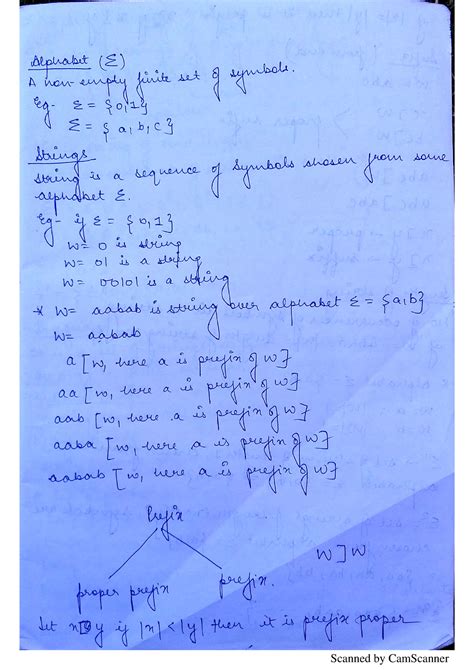 Alphabet (Σ)
A non-empty finite set of symbols.
Eg- Σ = {0,1}
Σ = {a,b,c}
Strings
string is a sequence of symbols chosen from some
alphabet Σ.
Eg- if Σ = {0,1}
w= 0 is string
w= 01 is a string
w= 00101 is a string
* w= aabab is string over alphabet Σ = {a,b}
w= aabab
a [w, here a is prefix of w}
aa [w, here a is prefix of w}
aab [w, here a is prefix of w}
aaba [w, here a is prefix of w}
aabab [w, here a is prefix of w}
Prefix
w]w
proper prefix prefix.
Let x y if |x|<|y| then it is prefix proper
Scanned by CamScanner